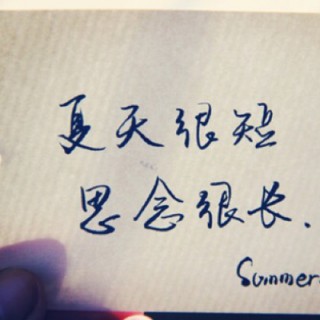 夏天很短
思念很长.
Summer